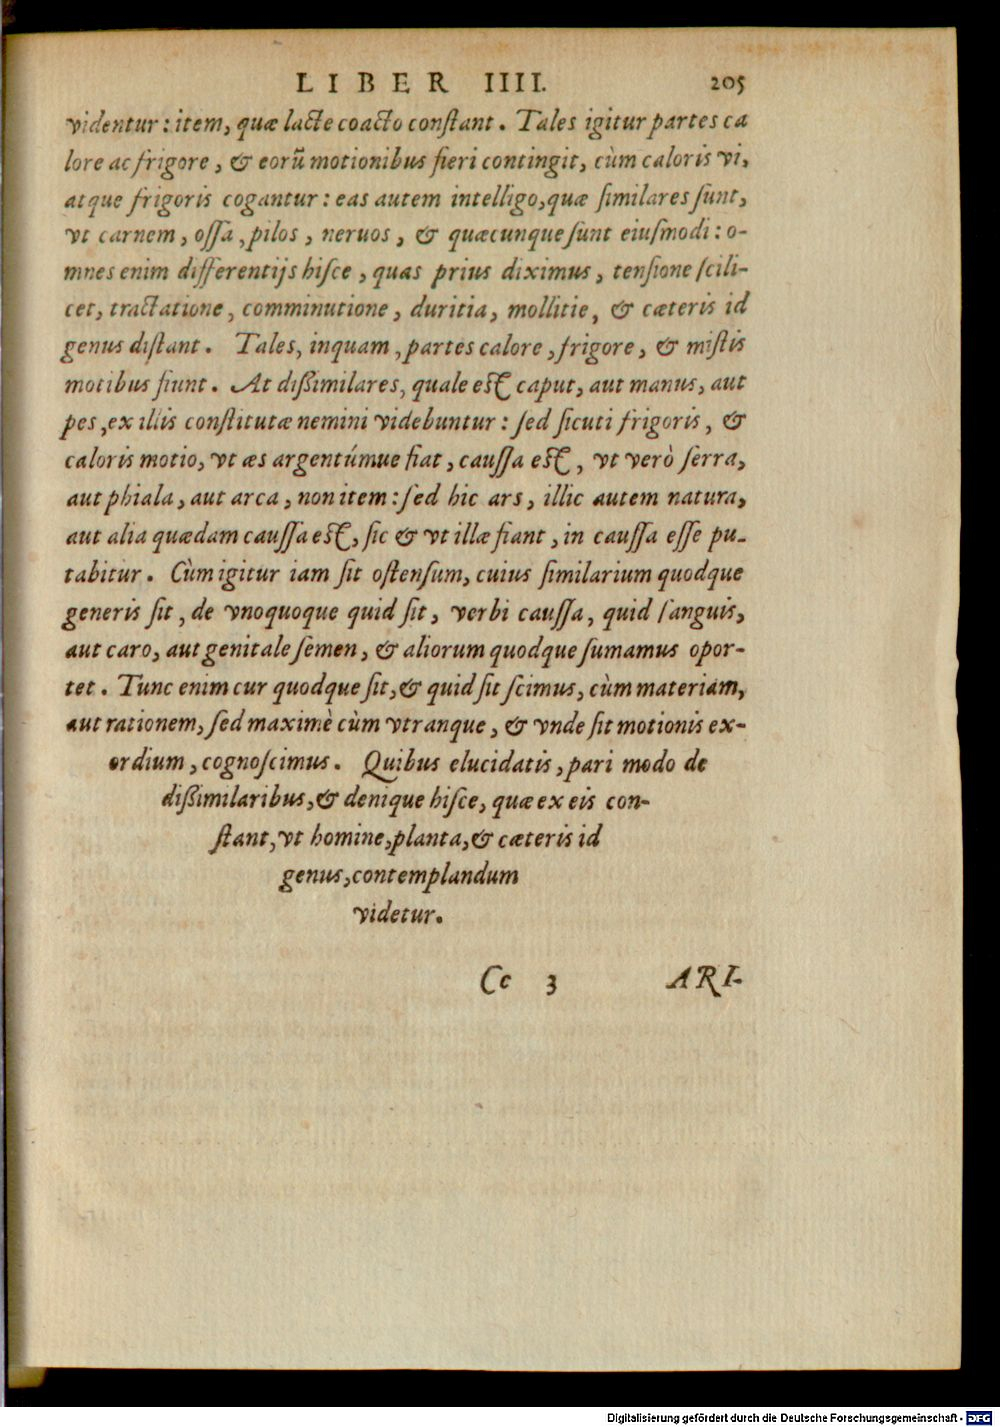 LIBER IIII. 205
videntur: item, quæ lacte coacto conſtant. Tales igitur partes ca
lore ac frigore, & eorũ motionibus fieri contingit, cùm caloris vi,
atque frigoris cogantur: eas autem intelligo, quæ ſimilares ſunt,
vt carnem, oſſa, pilos, neruos, & quæcunque ſunt eiuſmodi: o-
mnes enim differentijs hiſce, quas prius diximus, tenſione ſcili-
cet, tractatione, comminutione, duritia, mollitie, & cæteris id
genus diſtant. Tales, inquam, partes calore, frigore, & miſtis
motibus fiunt. At dißimilares, quale eſt caput, aut manus, aut
pes, ex illis conſtitutæ nemini videbuntur: ſed ſicuti frigoris, &
caloris motio, vt æs argentúmue fiat, cauſſa eſt, vt verò ſerra,
aut phiala, aut arca, non item: ſed hic ars, illic autem natura,
aut alia quædam cauſſa eſt, ſic & vt illæ fiant, in cauſſa eſſe pu-
tabitur. Cùm igitur iam ſit oſtenſum, cuius ſimilarium quodque
generis ſit, de vnoquoque quid ſit, verbi cauſſa, quid ſanguis,
aut caro, aut genitale ſemen, & aliorum quodque ſumamus opor-
tet. Tunc enim cur quodque ſit, & quid ſit ſcimus, cùm materiam,
aut rationem, ſed maximè cùm vtranque, & vnde ſit motionis ex-
ordium, cognoſcimus. Quibus elucidatis, pari modo de
dißimilaribus, & denique hiſce, quæ ex eis con-
ſtant, vt homine, planta, & cæteris id
genus, contemplandum
videtur.
Cc 3 ARI-
Digitalisierung gefördert durch die Deutsche Forschungsgemeinschaft - DFG